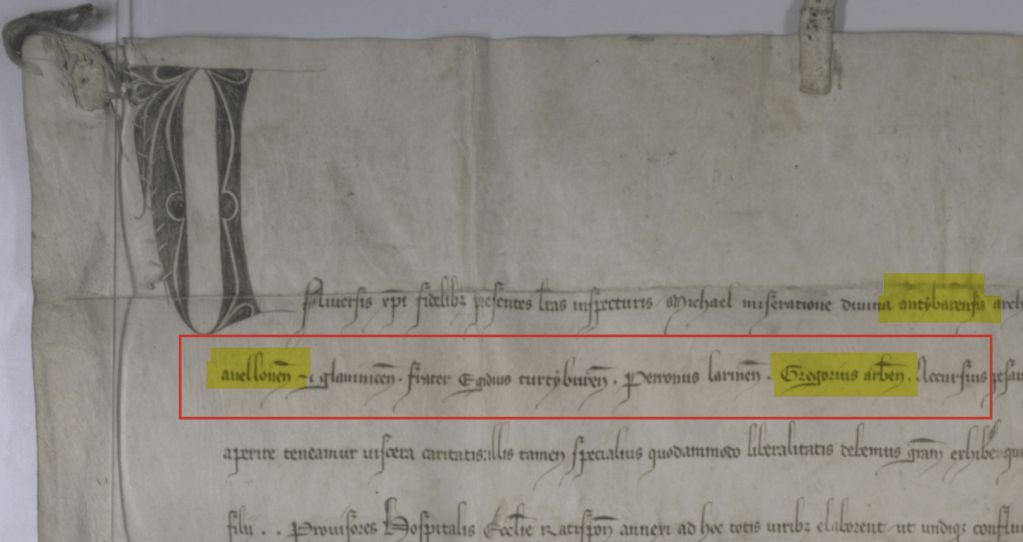 Universis xpi fidelibz presentes lras inspecturis Michael miseratione divina antybarensis arch
auellonen et glaminicen. frater Egidius turtybulen. Petronus larinen. Gregorius arben. Accursius pesau
aperire teneamur viscera caritatis: illis tamen specialius quodammodo liberalitatis debemus gram exhibe
filii . . Provisores Hospitalis Ecclie Ratispon anneri ad hoc totis viribz elaborent ut undiqz conflu